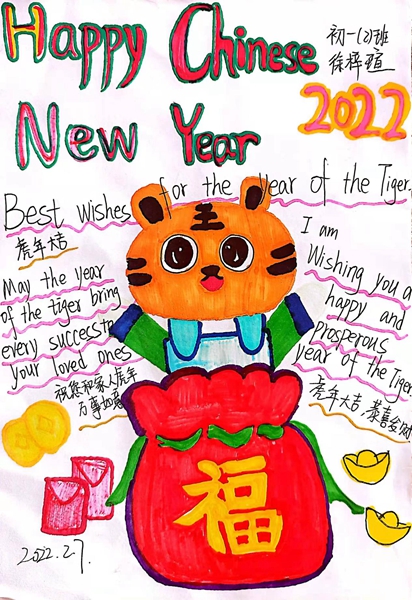 Happy Chinese
初一(2)班
徐梓瑄
2022
New Year
Best wishes for the Year of the Tiger
虎年大吉
May the year
of the tiger bring
every success to
your loved ones
祝您和家人虎年
万事如意
I am
Wishing you a
happy and
prosperous
year of the Tiger
虎年大吉,恭喜发财
王
福
2022.2.7.